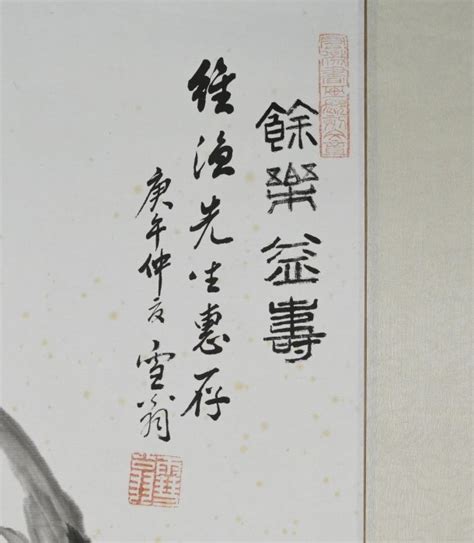 餘樂益壽
維漁先生惠存
庚午仲夏雪翁